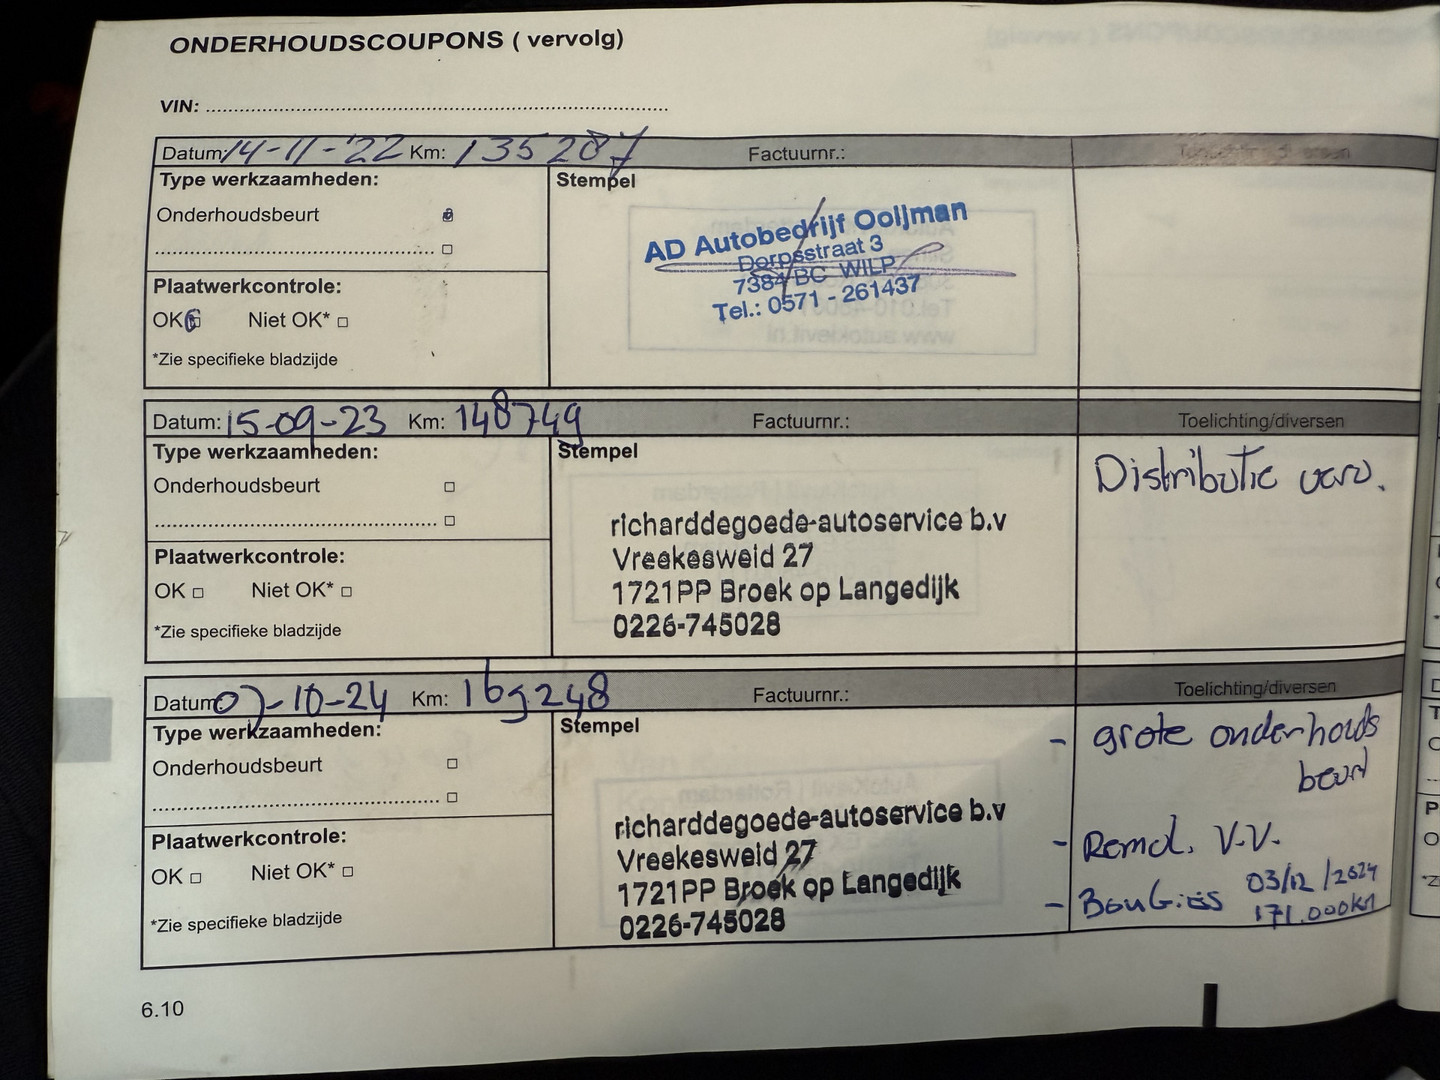 ONDERHOUDSCOUPONS ( vervolg)
VIN: ........................................................................
Datum: 14-11-'22 Km: 135 287 Factuurnr.: Toelichting/diversen
Type werkzaamheden: Stempel
Onderhoudsbeurt
AD Autobedrijf Ooijman
Dorpsstraat 3
7384 BC WILP
Tel.: 0571 - 261437
Plaatwerkcontrole:
OK Niet OK*
*Zie specifieke bladzijde
Datum: 15-09-23 Km: 148749 Factuurnr.: Toelichting/diversen
Type werkzaamheden: Stempel
Distributie verv.
Onderhoudsbeurt
richarddegoede-autoservice b.v
Vreekesweid 27
1721PP Broek op Langedijk
0226-745028
Plaatwerkcontrole:
OK Niet OK*
*Zie specifieke bladzijde
Datum: 07-10-24 Km: 169248 Factuurnr.: Toelichting/diversen
Type werkzaamheden: Stempel
- grote onderhouds
beurt
Onderhoudsbeurt
richarddegoede-autoservice b.v
Vreekesweid 27
1721PP Broek op Langedijk
0226-745028
- Remol. V.V.
- BouGiës 03/12/2024
171.000km
Plaatwerkcontrole:
OK Niet OK*
*Zie specifieke bladzijde
6.10